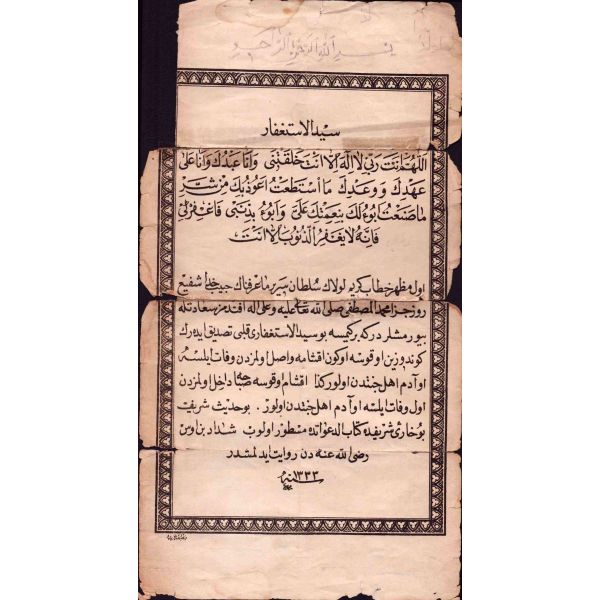 بسم الله الرحمن الرحيم
سيد الاستغفار
اللهم انت ربي لا اله الا انت خلقتني وانا عبدك وانا على
عهدك ووعدك ما استطعت اعوذ بك من شر
ما صنعت ابوء لك بنعمتك علي وابوء بذنبي فاغفر لي
فانه لا يغفر الذنوب الا انت
اول مظهر خطاب كريم لولاك سلطان سرير ما عرفناك شفيع
روز جزا محمد المصطفى صلى الله تعالى عليه وعلى اله افندمز سعادتله
بيورمشلردركه بر كيمسه بو سيد الاستغفارى قلبى تصديق ايدرك
كوندوزين اوقوسه اوكون اقشامه واصل اولمزدن وفات ايلسه
او آدم اهل جنتدن اولور كذا اقشام اوقوسه صباحه داخل اولمزدن
اول وفات ايلسه او آدم اهل جنتدن اولور . بو حديث شريف
بخارى شريفده كتاب الدعواتده منظور اولوب شداد بن اوس
رضى الله عنه دن روايت ايدلمشدر
سنه ١٣٣٣